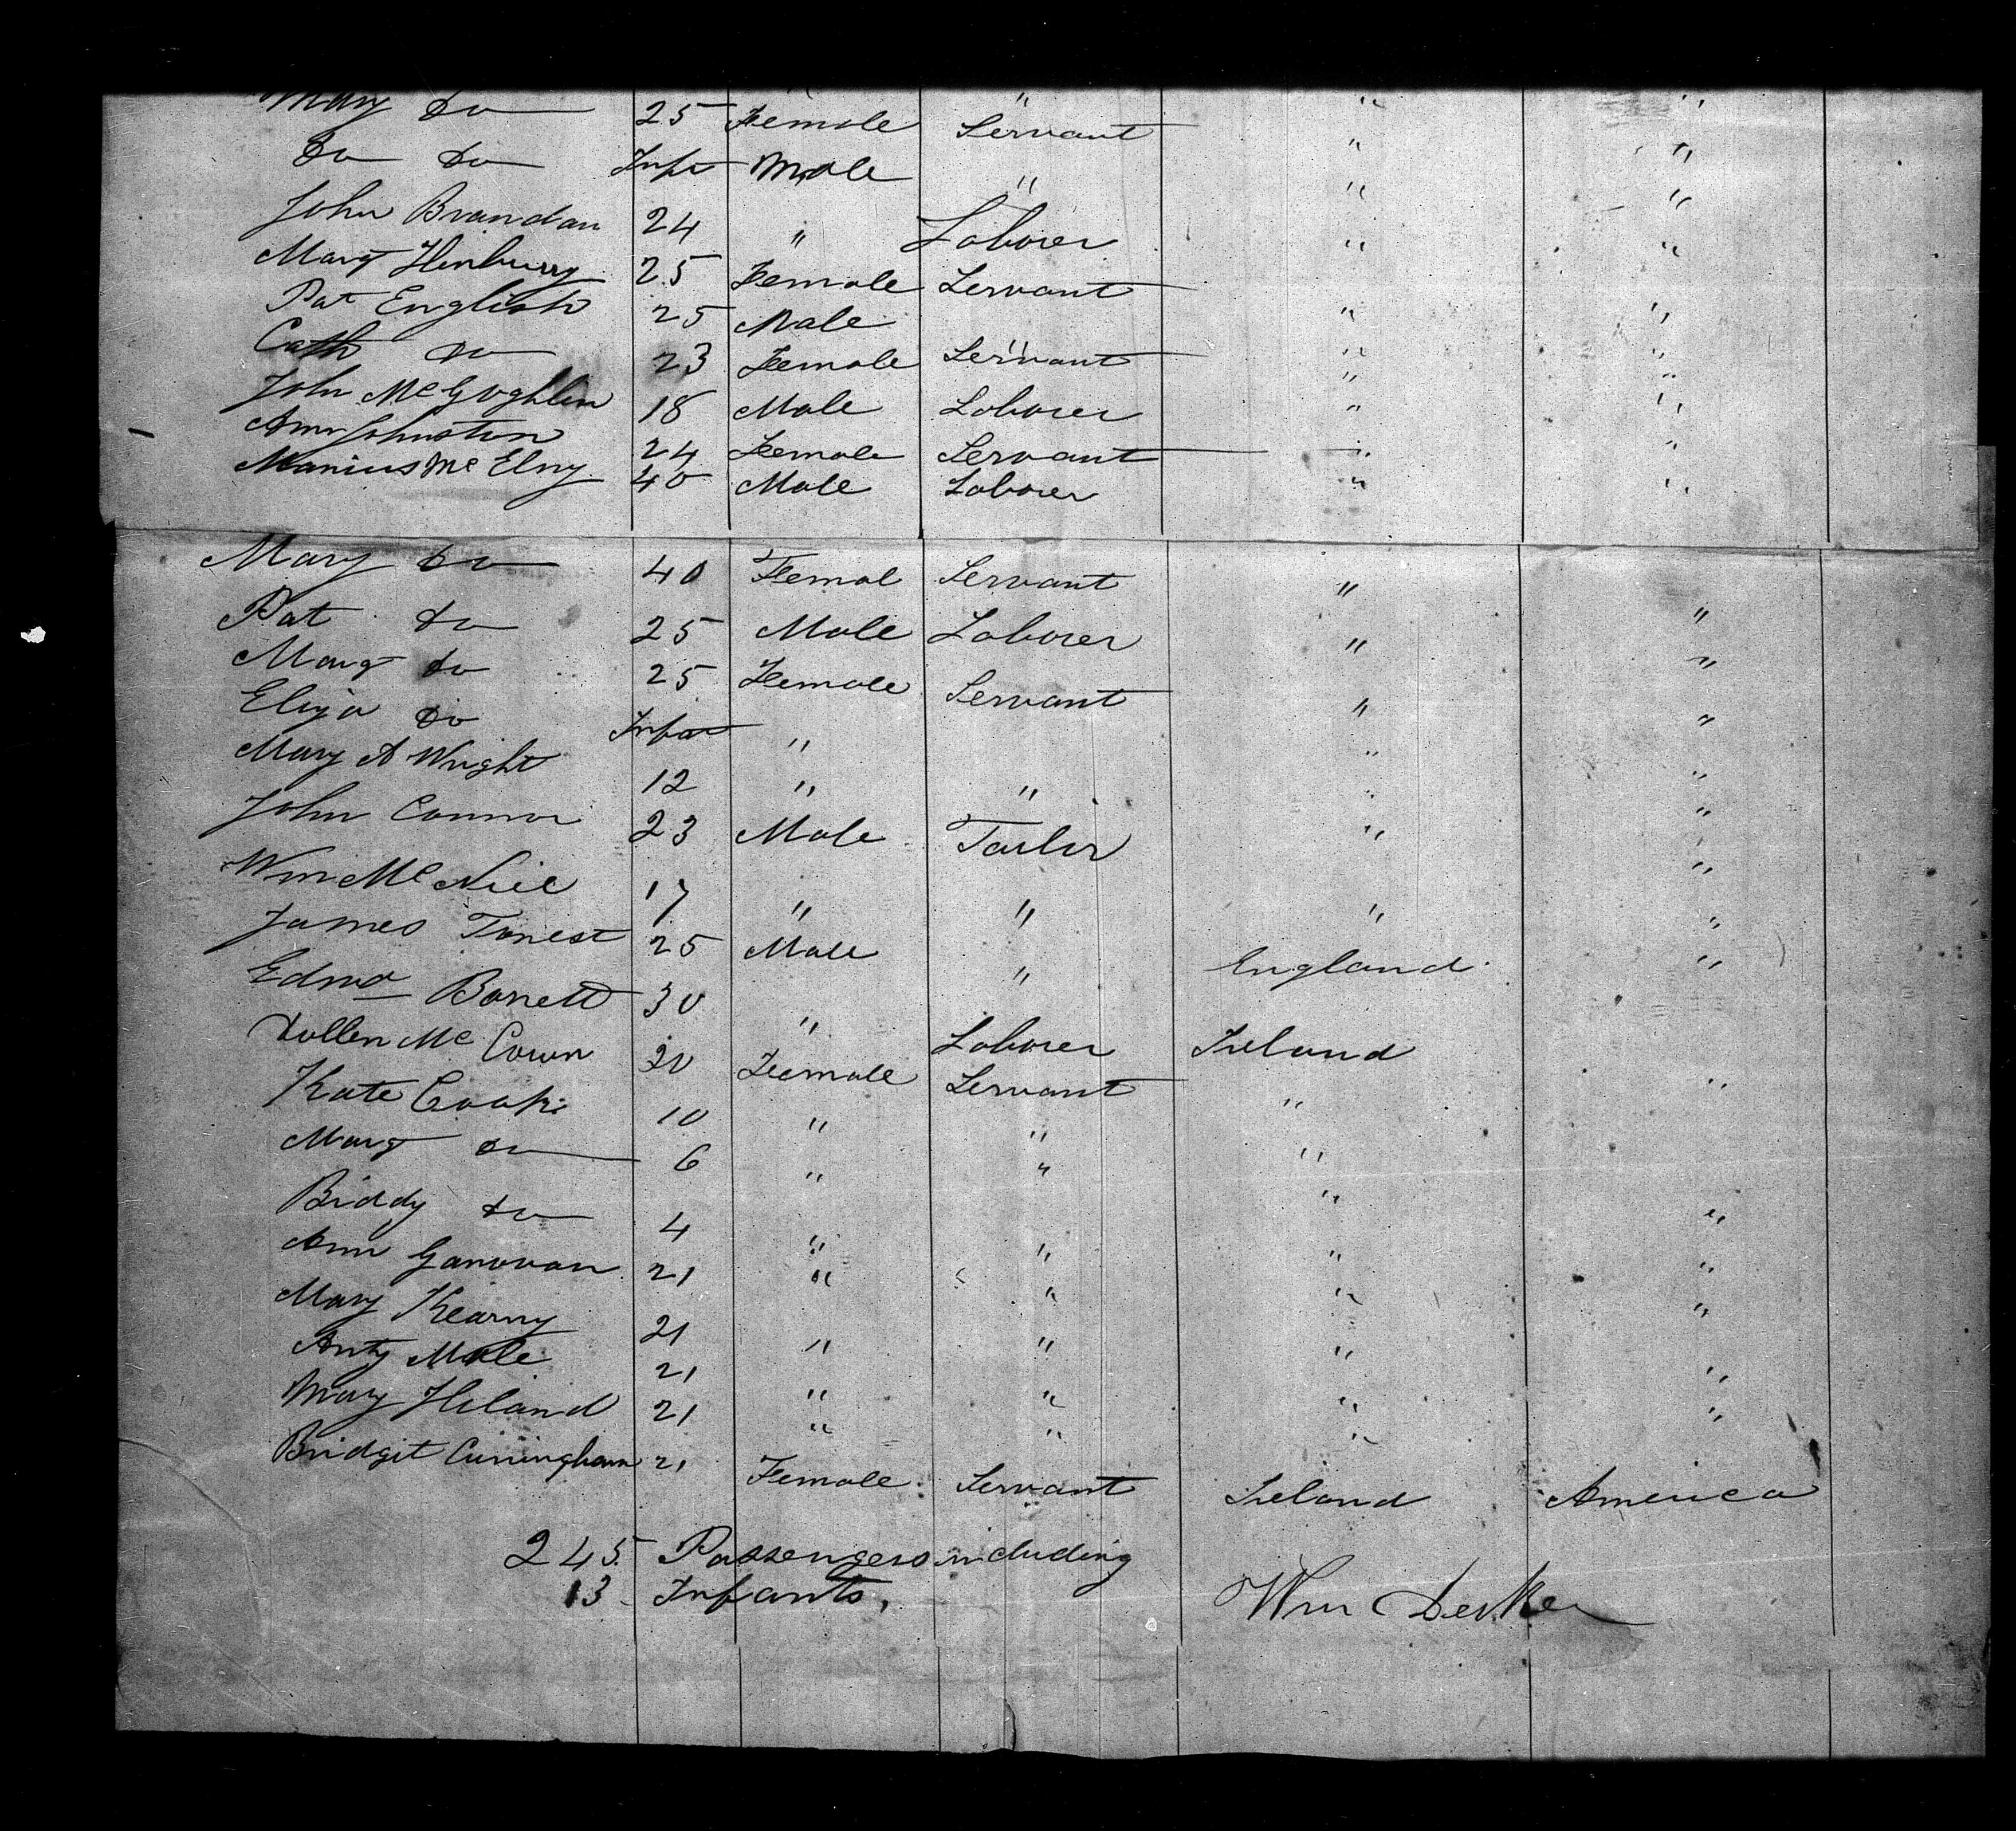 Mary Do 25 Female Servant " "
Do Do Inft Male " " "
John Brandan 24 " Laborer " "
Margt Henbury 25 Female Servant " "
Pat English 25 Male " " "
Cath Do 23 Female Servant " "
John McGoghlin 18 Male Laborer " "
Ann Johnston 24 Female Servant " "
Manius McElny 40 Male Laborer " "
Mary Do 40 Femal Servant " "
Pat Do 25 Male Laborer " "
Margt Do 25 Female Servant " "
Eliza Do Infat " " "
Mary A Wright 12 " " " "
John Connor 23 Male Tailir " "
Wm McNiel 17 " " " "
James Tonest 25 Male " England "
Edmd Barrett 30 " Laborer Ireland
McCown 20 Female Servant " "
Kate Cook 10 " " "
Margt Do 6 " " " "
Biddy Do 4 " " " "
Ann Ganovan 21 " " " "
Mary Kearny 21 " " "
Anty Male 21 " " " "
Mary Hiland 21 " " " "
Bridgit Cuningham 21 Female Servant Ireland America
245 Passengers including
13 Infants,
Wm Decker